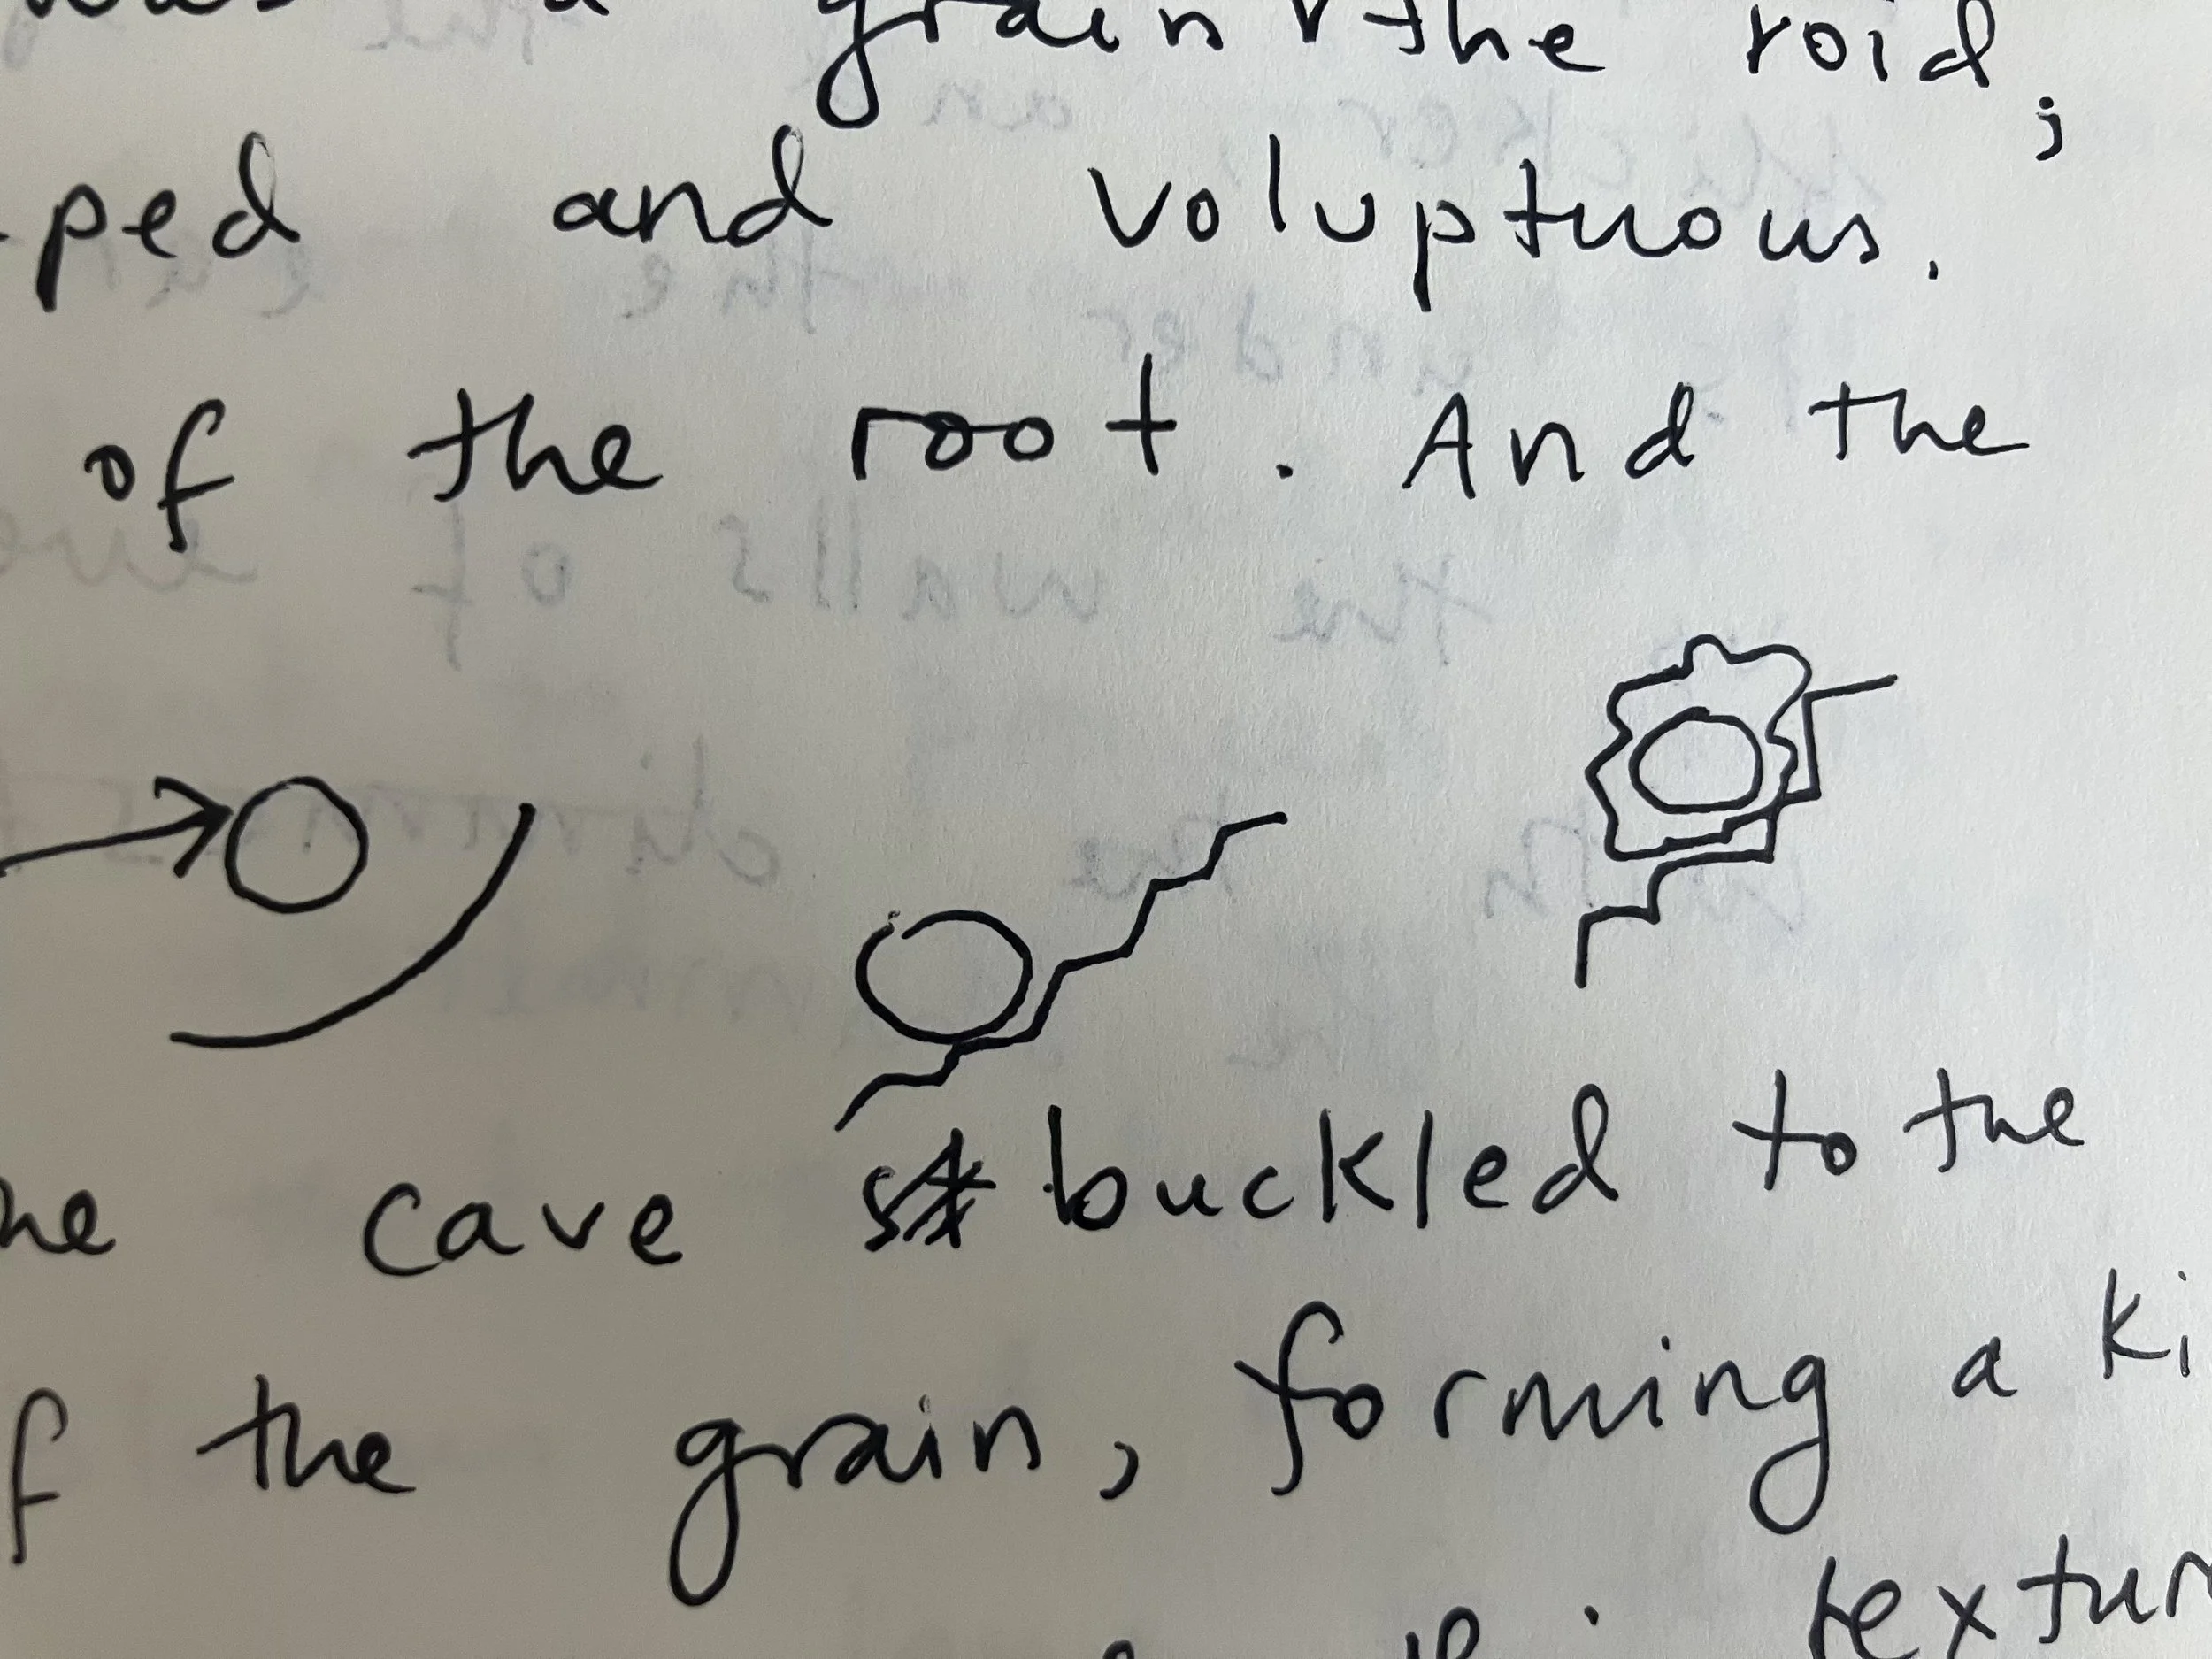 a grain & the roid;
ped and voluptuous.
of the root. And the
cave buckled to the
the grain, forming a